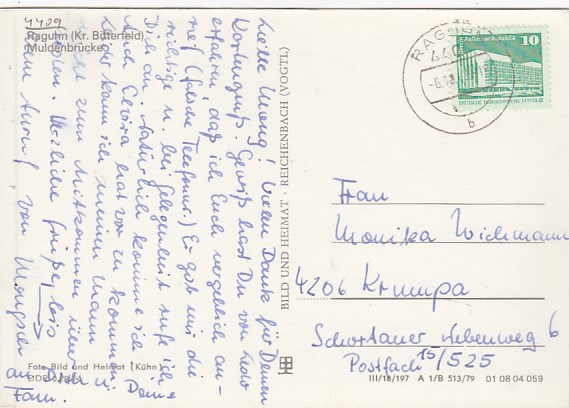 4409
Raguhn (Kr. Bitterfeld)
Muldenbrücke
Liebe Moni! Vielen Dank für Deinen
Kartengruß. Gewiß hast Du von
erfahren, daß ich Euch vergeblich an-
rief (falsche Telefonnr.) Er gab mir die
richtige u. bei Gelegenheit rufe ich
Dich an. Natürlich komme ich
Auch hat vor zu kommen.
Leider kann ich meinen Mann
nicht zum Mitkommen
Herzliche Grüße, bis
zum Anruf, von
an Dich u. Deine
Fam.
Foto Bild und Heimat (Kühn)
BILD UND HEIMAT · REICHENBACH (VOGTL)
RAGUHN
4409
b
10
DEUTSCHE DEMOKRATISCHE REPUBLIK
Frau
Monika Wichmann
4206 Krumpa
Schortauer Nebenweg 6
Postfach 15/525
III/18/197 A 1/B 513/79 01 08 04 059